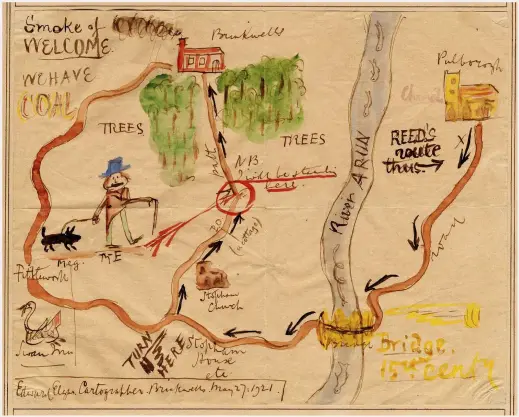 Smoke of
WELCOME.
WE HAVE
COAL
Brinkwells
Pulborough
Church
TREES
TREES
path
N.B.
I will be standing
here.
REED'S
route
thus.
River ARUN
road
TO
(cottage)
Meg.
ME
Fittleworth
Swan Inn
Stopham
Church
TURN
HERE
Stopham
House
etc
Bridge.
15th Cent'y
Edward Elgar, Cartographer. Brinkwells. May 27. 1921.